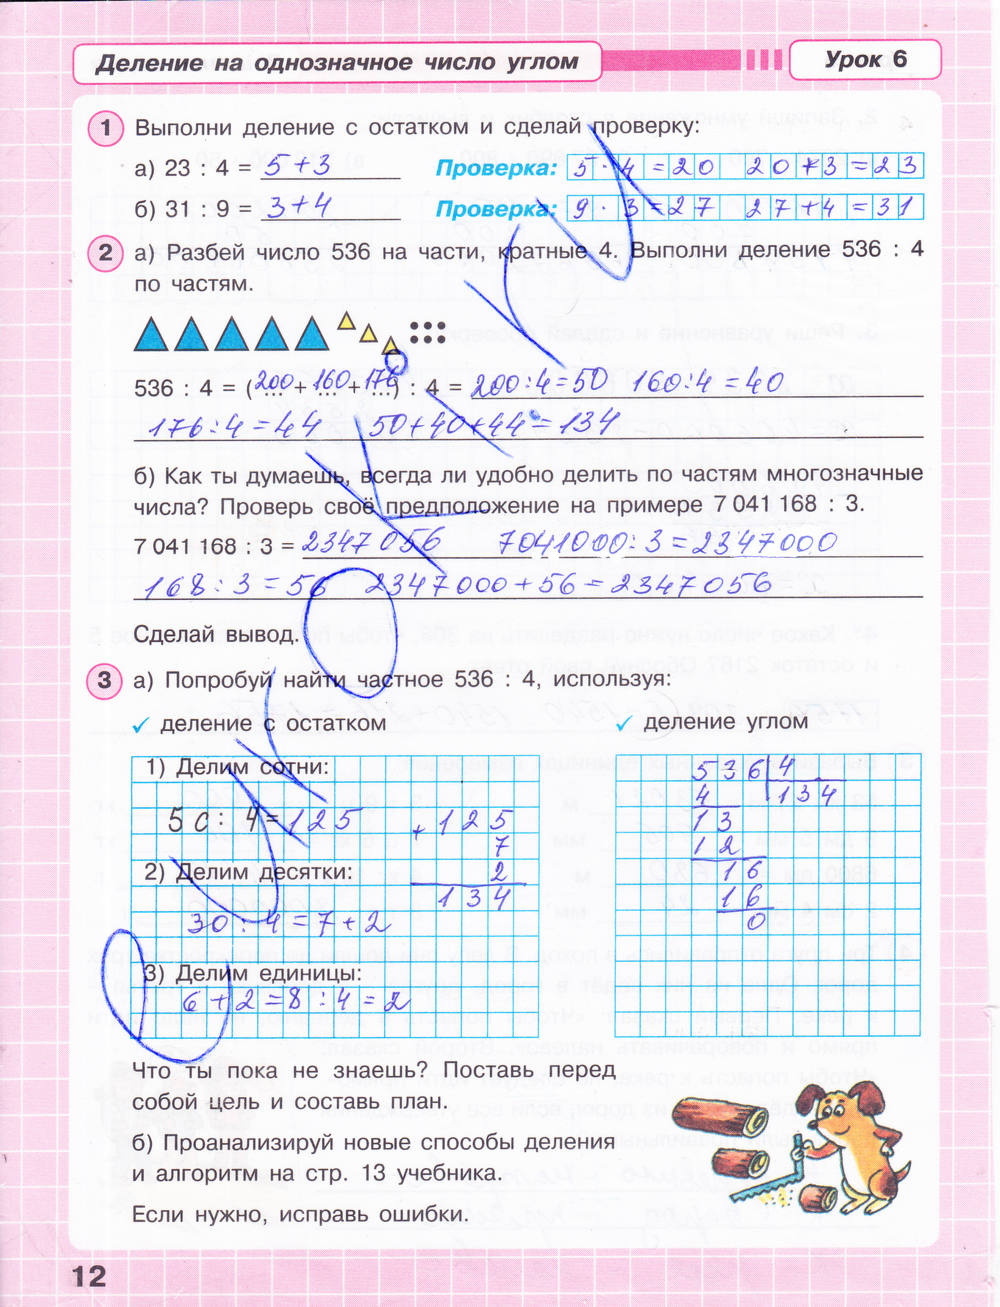 Деление на однозначное число углом
Урок 6
1 Выполни деление с остатком и сделай проверку:
а) 23 : 4 = 5+3 Проверка: 5 · 4 = 20 20+3=23
б) 31 : 9 = 3+4 Проверка: 9 · 3 = 27 27+4=31
2 а) Разбей число 536 на части, кратные 4. Выполни деление 536 : 4
по частям.
536 : 4 = (200+160+176) : 4 = 200:4=50 160:4=40
176:4=44 50+40+44=134
б) Как ты думаешь, всегда ли удобно делить по частям многозначные
числа? Проверь своё предположение на примере 7 041 168 : 3.
7 041 168 : 3 = 2347056 7041000:3=2347000
168:3=56 2347000+56=2347056
Сделай вывод.
3 а) Попробуй найти частное 536 : 4, используя:
✓ деление с остатком
1) Делим сотни:
50:4=125
+125
7
2) Делим десятки:
2
134
30:4=7+2
3) Делим единицы:
6+2=8:4=2
✓ деление углом
536 4
4 134
13
12
16
16
0
Что ты пока не знаешь? Поставь перед
собой цель и составь план.
б) Проанализируй новые способы деления
и алгоритм на стр. 13 учебника.
Если нужно, исправь ошибки.
12